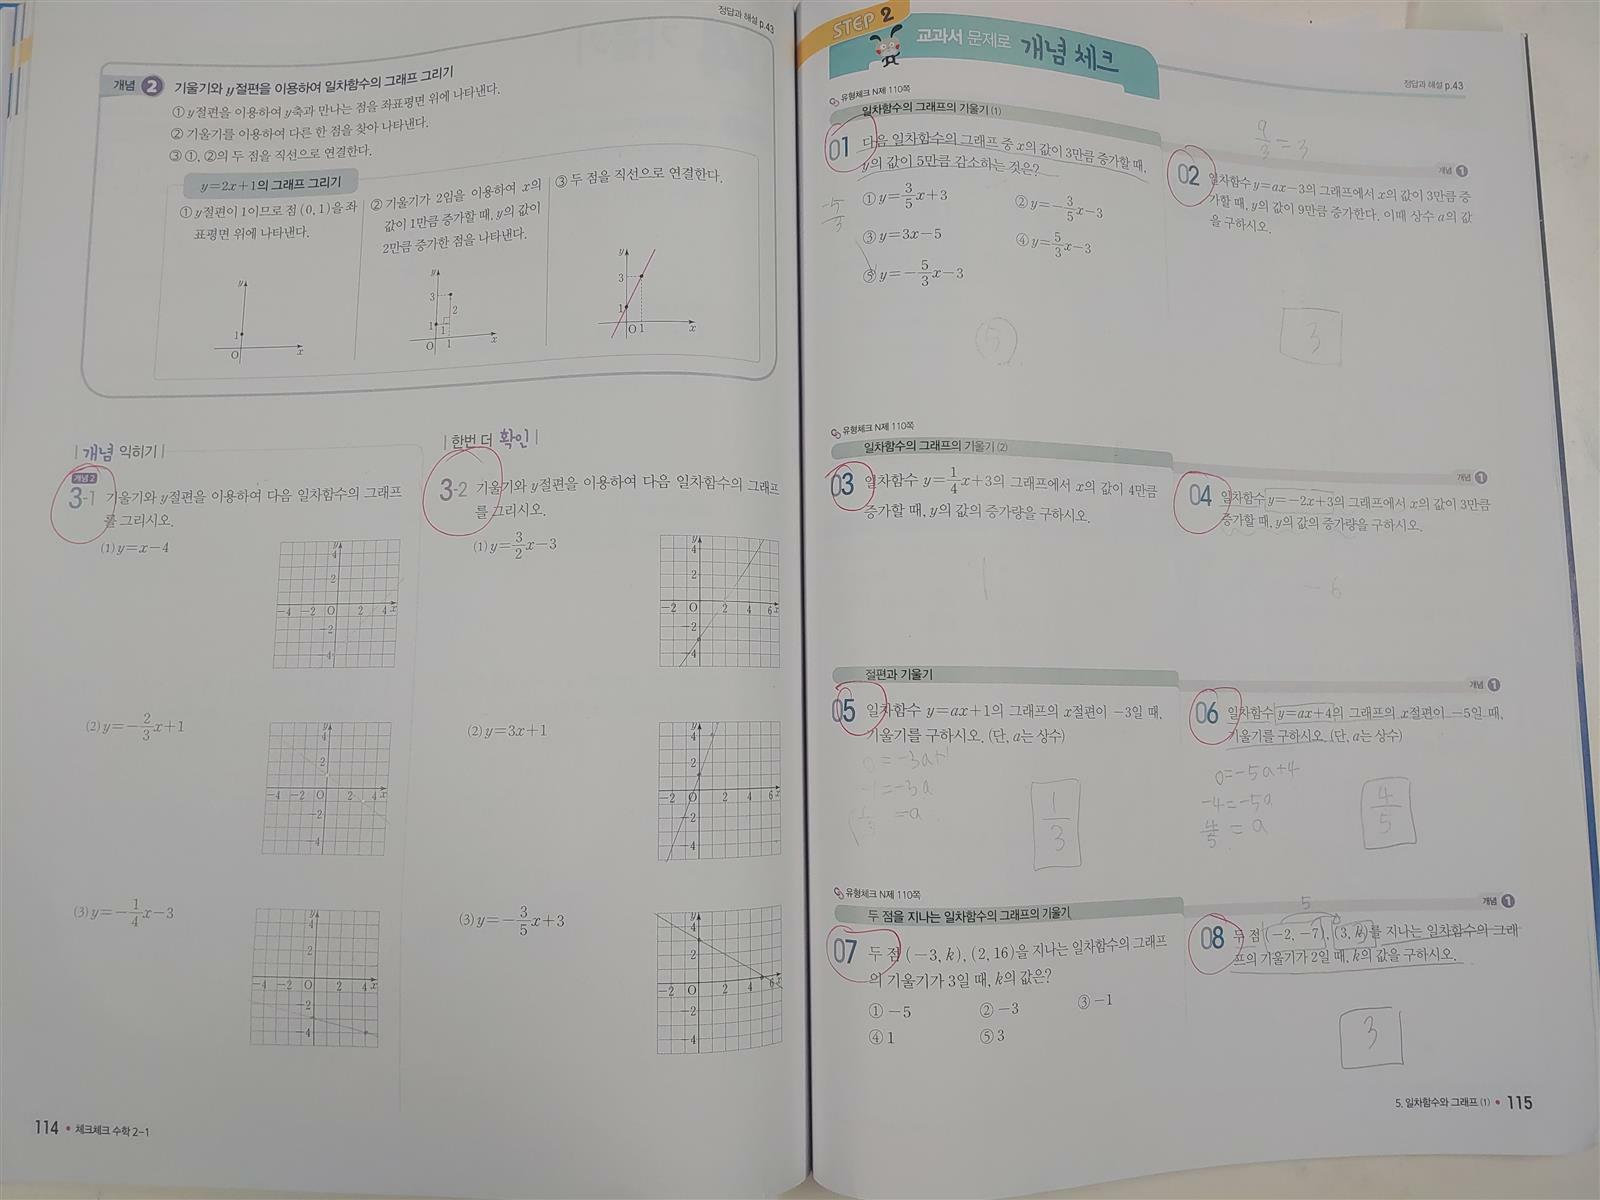 정답과 해설 p.43
개념 2 기울기와 y절편을 이용하여 일차함수의 그래프 그리기
① y절편을 이용하여 y축과 만나는 점을 좌표평면 위에 나타낸다.
② 기울기를 이용하여 다른 한 점을 찾아 나타낸다.
③ ①, ②의 두 점을 직선으로 연결한다.
y=2x+1의 그래프 그리기
① y절편이 1이므로 점 (0, 1)을 좌
표평면 위에 나타낸다.
② 기울기가 2임을 이용하여 x의
값이 1만큼 증가할 때, y의 값이
2만큼 증가한 점을 나타낸다.
③ 두 점을 직선으로 연결한다.
y
1
O
x
y
3
2
1
1
O
1
x
y
3
1
O
1
x
개념 익히기
개념 2
3-1 기울기와 y절편을 이용하여 다음 일차함수의 그래프
를 그리시오.
(1) y=x-4
y
4
2
-4 -2 O 2 4 x
-2
-4
(2) y=-2/3x+1
y
4
2
-4 -2 O 2 4 x
-2
-4
(3) y=-1/4x-3
y
4
2
-4 -2 O 2 4 x
-2
-4
한번 더 확인
3-2 기울기와 y절편을 이용하여 다음 일차함수의 그래프
를 그리시오.
(1) y=3/2x-3
y
4
2
-2 O 2 4 6 x
-2
-4
(2) y=3x+1
y
4
2
-2 O 2 4 6 x
-2
-4
(3) y=-3/5x+3
y
4
2
-2 O 2 4 6 x
-2
-4
114 • 체크체크 수학 2-1
STEP 2
교과서 문제로 개념 체크
정답과 해설 p.43
유형체크 N제 110쪽
일차함수의 그래프의 기울기 (1)
01 다음 일차함수의 그래프 중 x의 값이 3만큼 증가할 때,
y의 값이 5만큼 감소하는 것은?
① y=3/5x+3
② y=-3/5x-3
③ y=3x-5
④ y=5/3x-3
⑤ y=-5/3x-3
-5/3
⑤
9/3=3
개념 1
02 일차함수 y=ax-3의 그래프에서 x의 값이 3만큼 증
가할 때, y의 값이 9만큼 증가한다. 이때 상수 a의 값
을 구하시오.
3
유형체크 N제 110쪽
일차함수의 그래프의 기울기 (2)
03 일차함수 y=1/4x+3의 그래프에서 x의 값이 4만큼
증가할 때, y의 값의 증가량을 구하시오.
1
개념 1
04 일차함수 y=-2x+3의 그래프에서 x의 값이 3만큼
증가할 때, y의 값의 증가량을 구하시오.
-6
절편과 기울기
05 일차함수 y=ax+1의 그래프의 x절편이 -3일 때,
기울기를 구하시오. (단, a는 상수)
0=-3a+1
-1=-3a
1/3=a
1/3
개념 1
06 일차함수 y=ax+4의 그래프의 x절편이 -5일 때,
기울기를 구하시오. (단, a는 상수)
0=-5a+4
-4=-5a
4/5=a
4/5
유형체크 N제 110쪽
두 점을 지나는 일차함수의 그래프의 기울기
07 두 점 (-3, k), (2, 16)을 지나는 일차함수의 그래프
의 기울기가 3일 때, k의 값은?
① -5
② -3
③ -1
④ 1
⑤ 3
개념 1
5
08 두 점 (-2, -7), (3, k)를 지나는 일차함수의 그래
프의 기울기가 2일 때, k의 값을 구하시오.
3
5. 일차함수와 그래프 (1) • 115